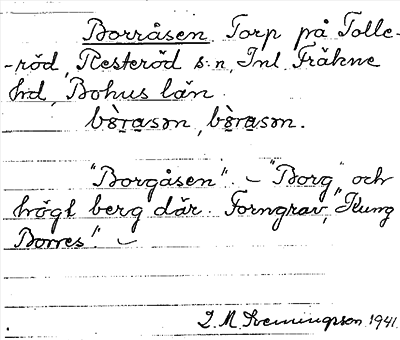 Borråsen Torp på Tolle-
-röd, Resteröd s:n, Inl. Fräkne
hd, Bohus län.
bò̤rasən, bò̤rasən.
"Borgåsen". – "Borg" och
högt berg där. Forngrav, "Kung
Borres". –
J. M. Svenningson 1941.